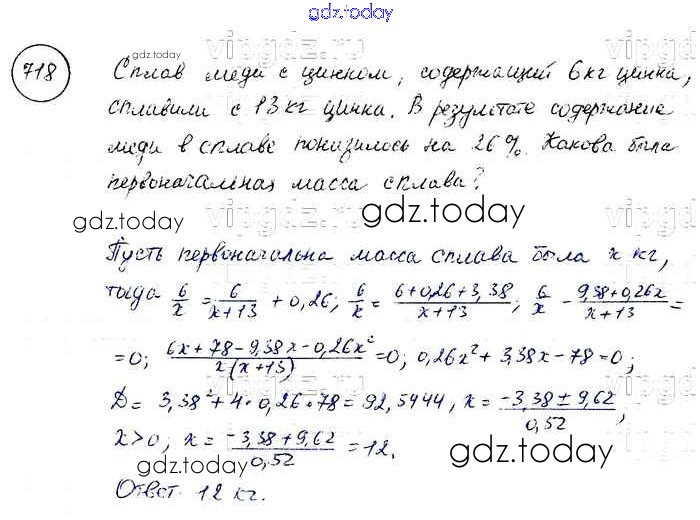 gdz.today
718
Сплав меди с цинком, содержащий 6 кг цинка,
сплавили с 13 кг цинка. В результате содержание
меди в сплаве понизилось на 26%. Какова была
первоначальная масса сплава?
Пусть первоначальна масса сплава была x кг,
тогда 6/x = 6/(x+13) + 0,26; 6/x = (6+0,26+3,38)/(x+13); 6/x - (9,38+0,26x)/(x+13) =
= 0; (6x+78-9,38x-0,26x²)/(x(x+13)) = 0; 0,26x² + 3,38x - 78 = 0;
D = 3,38² + 4·0,26·78 = 92,5444, x = (-3,38 ± 9,62)/0,52,
x > 0; x = (-3,38+9,62)/0,52 = 12.
Ответ. 12 кг.
gdz.today
gdz.today
gdz.today
gdz.today
gdz.today
gdz.today